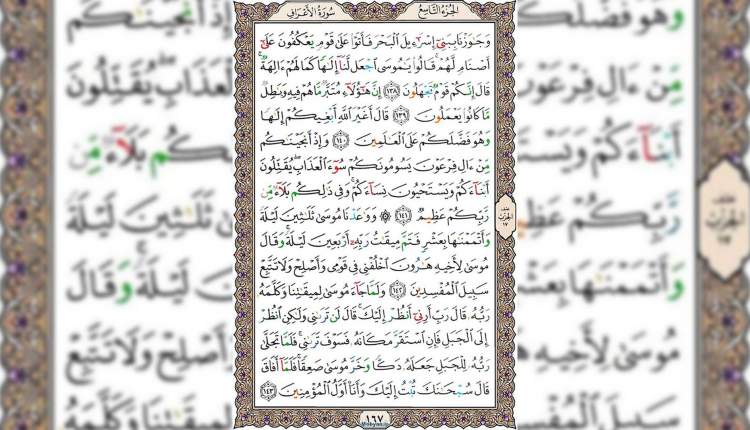 الجزء التاسع
سورة الأعراف
وَجَٰوَزْنَا بِبَنِىٓ إِسْرَٰٓءِيلَ ٱلْبَحْرَ فَأَتَوْا۟ عَلَىٰ قَوْمٍ يَعْكُفُونَ عَلَىٰٓ
أَصْنَامٍ لَّهُمْ قَالُوا۟ يَٰمُوسَى ٱجْعَل لَّنَآ إِلَٰهًا كَمَا لَهُمْ ءَالِهَةٌ
قَالَ إِنَّكُمْ قَوْمٌ تَجْهَلُونَ ١٣٨ إِنَّ هَٰٓؤُلَآءِ مُتَبَّرٌ مَّا هُمْ فِيهِ وَبَٰطِلٌ
مَّا كَانُوا۟ يَعْمَلُونَ ١٣٩ قَالَ أَغَيْرَ ٱللَّهِ أَبْغِيكُمْ إِلَٰهًا
وَهُوَ فَضَّلَكُمْ عَلَى ٱلْعَٰلَمِينَ ١٤٠ وَإِذْ أَنجَيْنَٰكُم
مِّنْ ءَالِ فِرْعَوْنَ يَسُومُونَكُمْ سُوٓءَ ٱلْعَذَابِ يُقَتِّلُونَ
أَبْنَآءَكُمْ وَيَسْتَحْيُونَ نِسَآءَكُمْ وَفِى ذَٰلِكُم بَلَآءٌ مِّن
رَّبِّكُمْ عَظِيمٌ ١٤١ ۞ وَوَٰعَدْنَا مُوسَىٰ ثَلَٰثِينَ لَيْلَةً
وَأَتْمَمْنَٰهَا بِعَشْرٍ فَتَمَّ مِيقَٰتُ رَبِّهِۦٓ أَرْبَعِينَ لَيْلَةً وَقَالَ
مُوسَىٰ لِأَخِيهِ هَٰرُونَ ٱخْلُفْنِى فِى قَوْمِى وَأَصْلِحْ وَلَا تَتَّبِعْ
سَبِيلَ ٱلْمُفْسِدِينَ ١٤٢ وَلَمَّا جَآءَ مُوسَىٰ لِمِيقَٰتِنَا وَكَلَّمَهُۥ
رَبُّهُۥ قَالَ رَبِّ أَرِنِىٓ أَنظُرْ إِلَيْكَ قَالَ لَن تَرَىٰنِى وَلَٰكِنِ ٱنظُرْ
إِلَى ٱلْجَبَلِ فَإِنِ ٱسْتَقَرَّ مَكَانَهُۥ فَسَوْفَ تَرَىٰنِى فَلَمَّا تَجَلَّىٰ
رَبُّهُۥ لِلْجَبَلِ جَعَلَهُۥ دَكًّا وَخَرَّ مُوسَىٰ صَعِقًا فَلَمَّآ أَفَاقَ
قَالَ سُبْحَٰنَكَ تُبْتُ إِلَيْكَ وَأَنَا۠ أَوَّلُ ٱلْمُؤْمِنِينَ ١٤٣
١٦٧